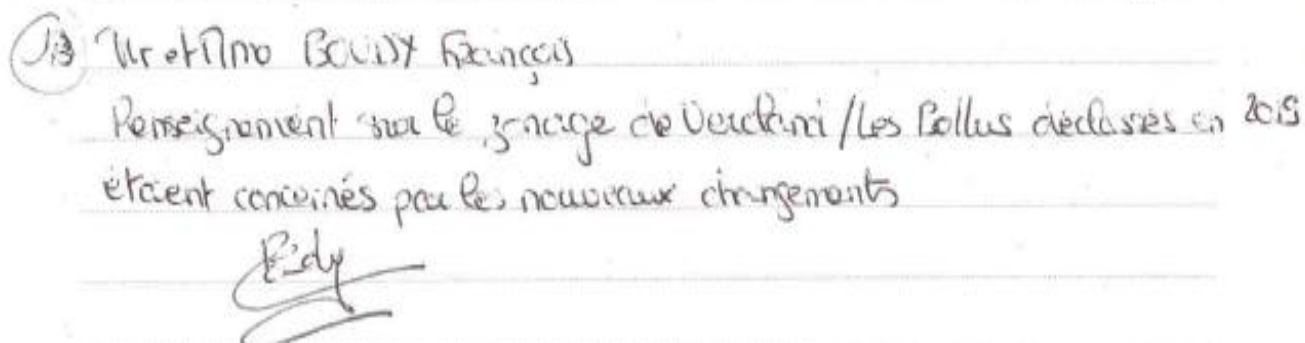 13 Mr et Mme BOUDY François
Renseignement sur le zonage de / Les Pollus déclassés en 2019
étaient concernés par les nouveaux changements